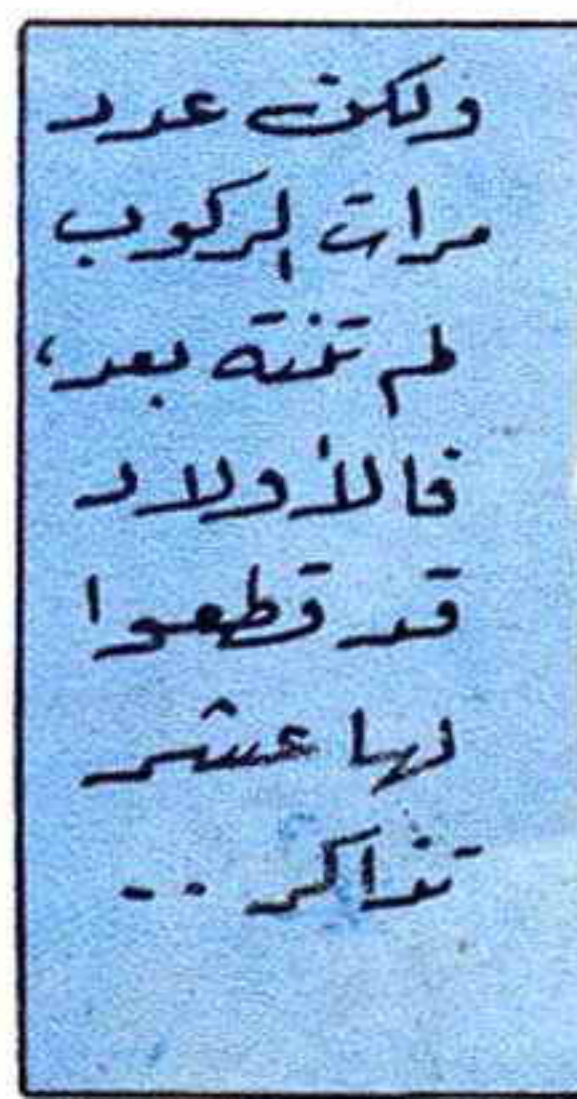 ولكن عدد
مرات الركوب
لم تنته بعد،
فالأولاد
قد قطعوا
لها عشر
تذاكر ..